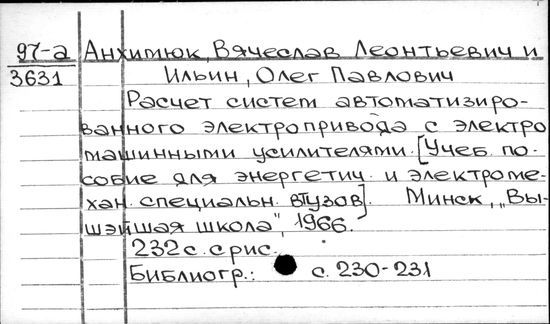 97-а Анхимюк, Вячеслав Леонтьевич и
3631 Ильин, Олег Павлович
Расчет систем автоматизиро-
ванного электропривода с электро
машинными усилителями. [Учеб. по-
собие для энергетич. и электроме-
хан. специальн. втузов]. Минск, „Вы-
шэйшая школа", 1966.
232 с. с рис.
Библиогр.: с. 230-231